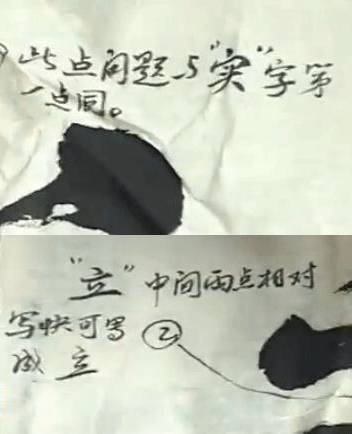 此点问题与"实"字第
一点同。
"立"中间两点相对
写快可写
②
成立